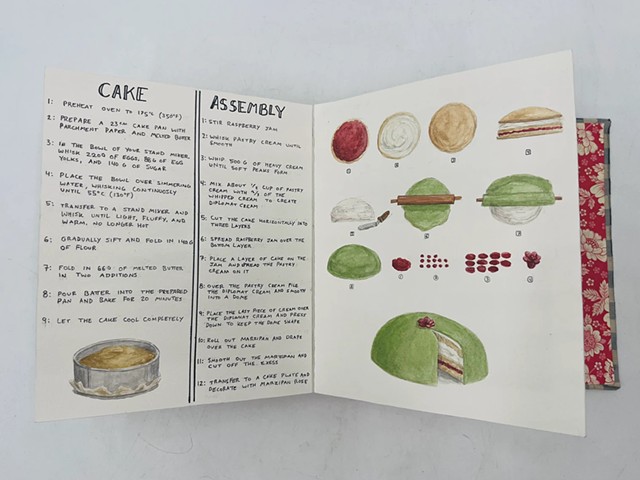 CAKE
1: PREHEAT OVEN TO 175°C (350°F)
2: PREPARE A 23CM CAKE PAN WITH
PARCHMENT PAPER AND MELTED BUTTER
3: IN THE BOWL OF YOUR STAND MIXER,
WHISK 220G OF EGGS, OF EGG
YOLKS, AND 140G OF SUGAR
4: PLACE THE BOWL OVER SIMMERING
WATER, WHISKING CONTINUOUSLY
UNTIL 55°C (130°F)
5: TRANSFER TO A STAND MIXER AND
WHISK UNTIL LIGHT, FLUFFY, AND
WARM, NO LONGER HOT
6: GRADUALLY SIFT AND FOLD IN 140G
OF FLOUR
7: FOLD IN 66G OF MELTED BUTTER
IN TWO ADDITIONS
8: POUR BATER INTO THE PREPARED
PAN AND BAKE FOR 20 MINUTES
9: LET THE CAKE COOL COMPLETELY
ASSEMBLY
1: STIR RASPBERRY JAM
2: WHISK PASTRY CREAM UNTIL
SMOOTH
3: WHIP 500G OF HEAVY CREAM
UNTIL SOFT PEAKS FORM
4: MIX ABOUT CUP OF PASTRY
CREAM WITH OF THE
WHIPPED CREAM TO CREATE
DIPLOMAT CREAM
5: CUT THE CAKE HORIZONTALLY INTO
THREE LAYERS
6: SPREAD RASPBERRY JAM OVER THE
BOTTOM LAYER
7: PLACE A LAYER OF CAKE ON THE
JAM AND SPREAD THE PASTRY
CREAM ON IT
8: OVER THE PASTRY CREAM PILE
THE DIPLOMAT CREAM AND SMOOTH
INTO A DOME
9: PLACE THE LAST PIECE OF CREAM OVER
THE DIPLOMAT CREAM AND PRESS
DOWN TO KEEP THE DOME SHAPE
10: ROLL OUT MARZIPAN AND DRAPE
OVER THE CAKE
11: SMOOTH OUT THE MARZIPAN AND
CUT OFF THE EXESS
12: TRANSFER TO A CAKE PLATE AND
DECORATE WITH MARZIPAN ROSE